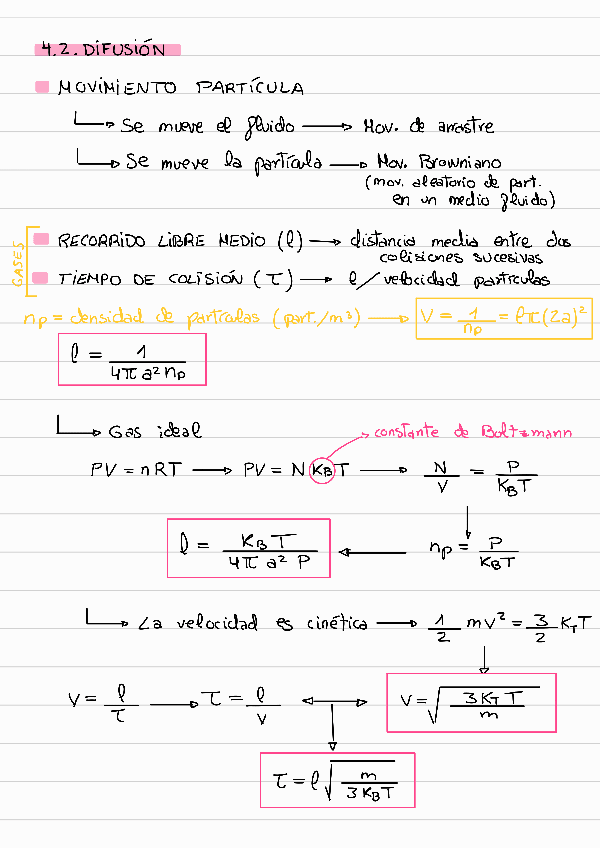 4.2. DIFUSIÓN
MOVIMIENTO PARTÍCULA
↳ Se mueve el fluido → Mov. de arrastre
↳ Se mueve la partícula → Mov. Browniano
(mov. aleatorio de part.
en un medio fluido)
GASES
RECORRIDO LIBRE MEDIO (l) → distancia media entre dos
colisiones sucesivas
TIEMPO DE COLISIÓN (τ) → l / velocidad partículas
np = densidad de partículas (part./m³) → V = 1/np = lπ(2a)²
l = 1/(4π a² np)
↳ Gas ideal
constante de Boltzmann
PV = nRT → PV = N KB T → N/V = P/(KB T)
l = KB T/(4π a² P) ← np = P/(KB T)
↳ La velocidad es cinética → 1/2 mv² = 3/2 KT T
v = l/τ → τ = l/v ↔ v = √(3KT T/m)
τ = l √(m/(3KB T))